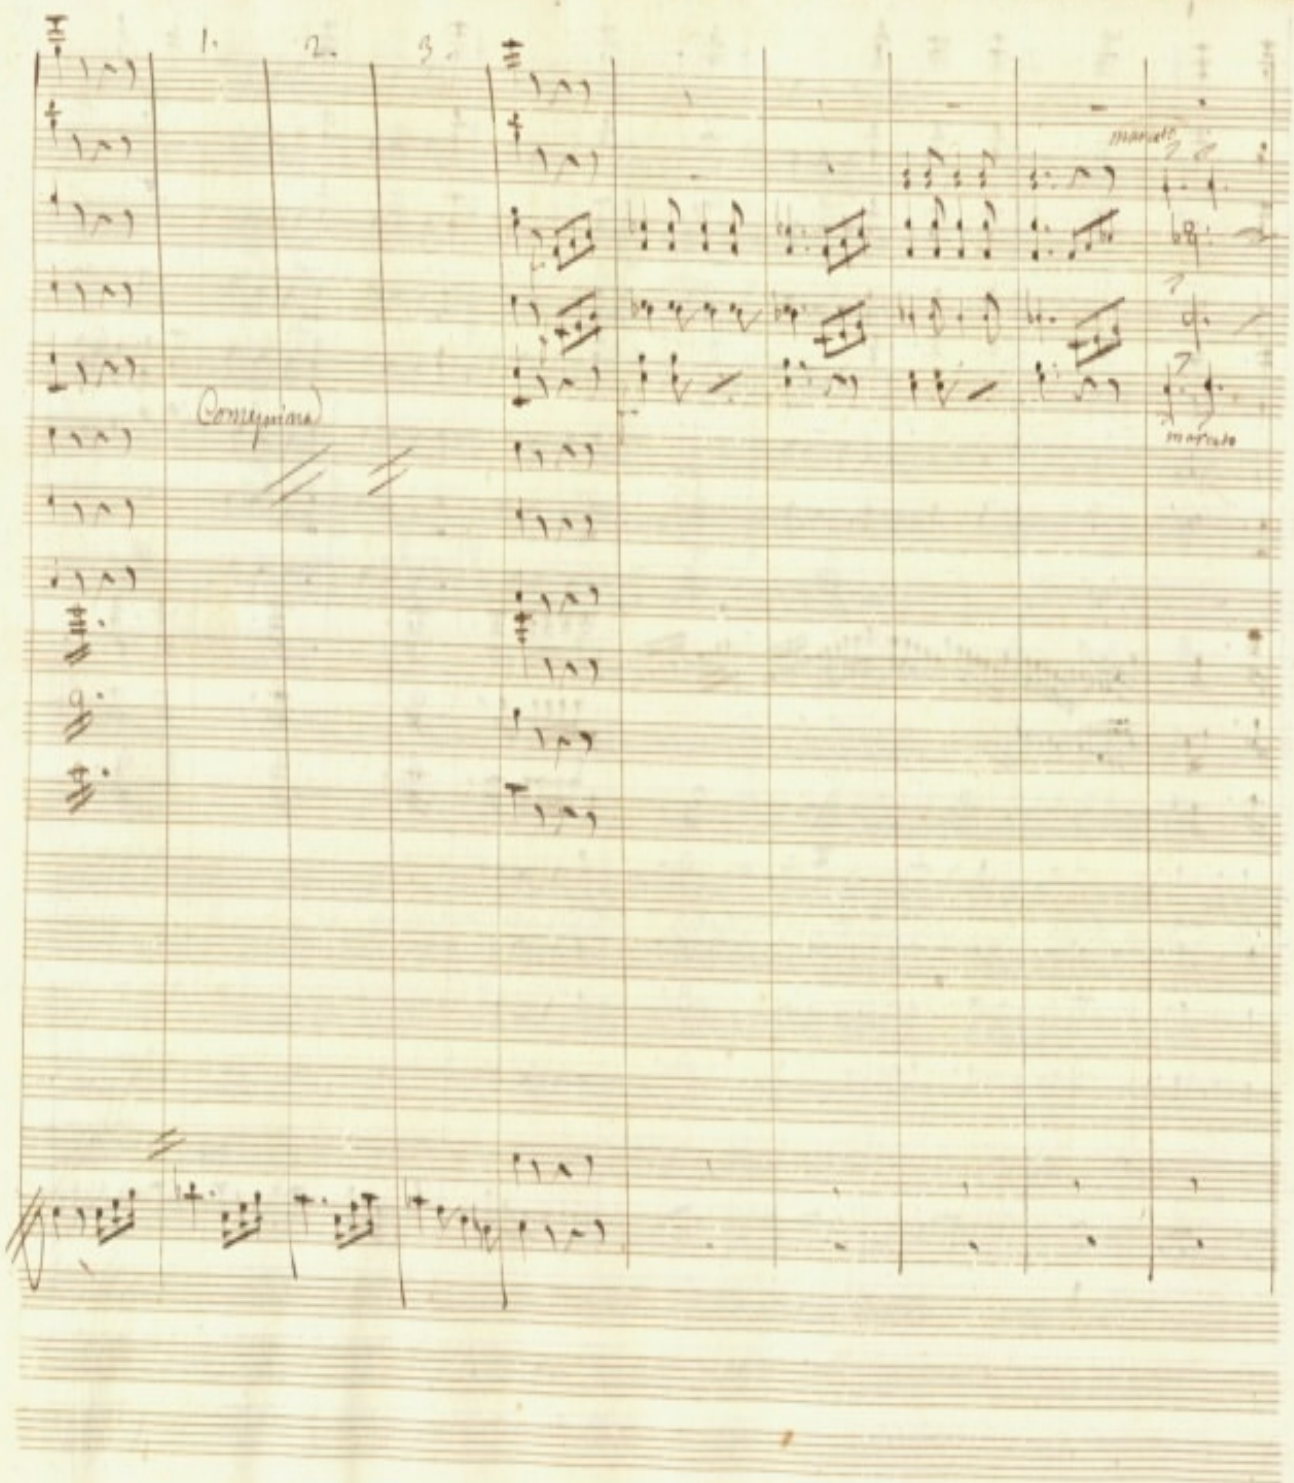 1. 2. 3.
marcato
Come prima
marcato